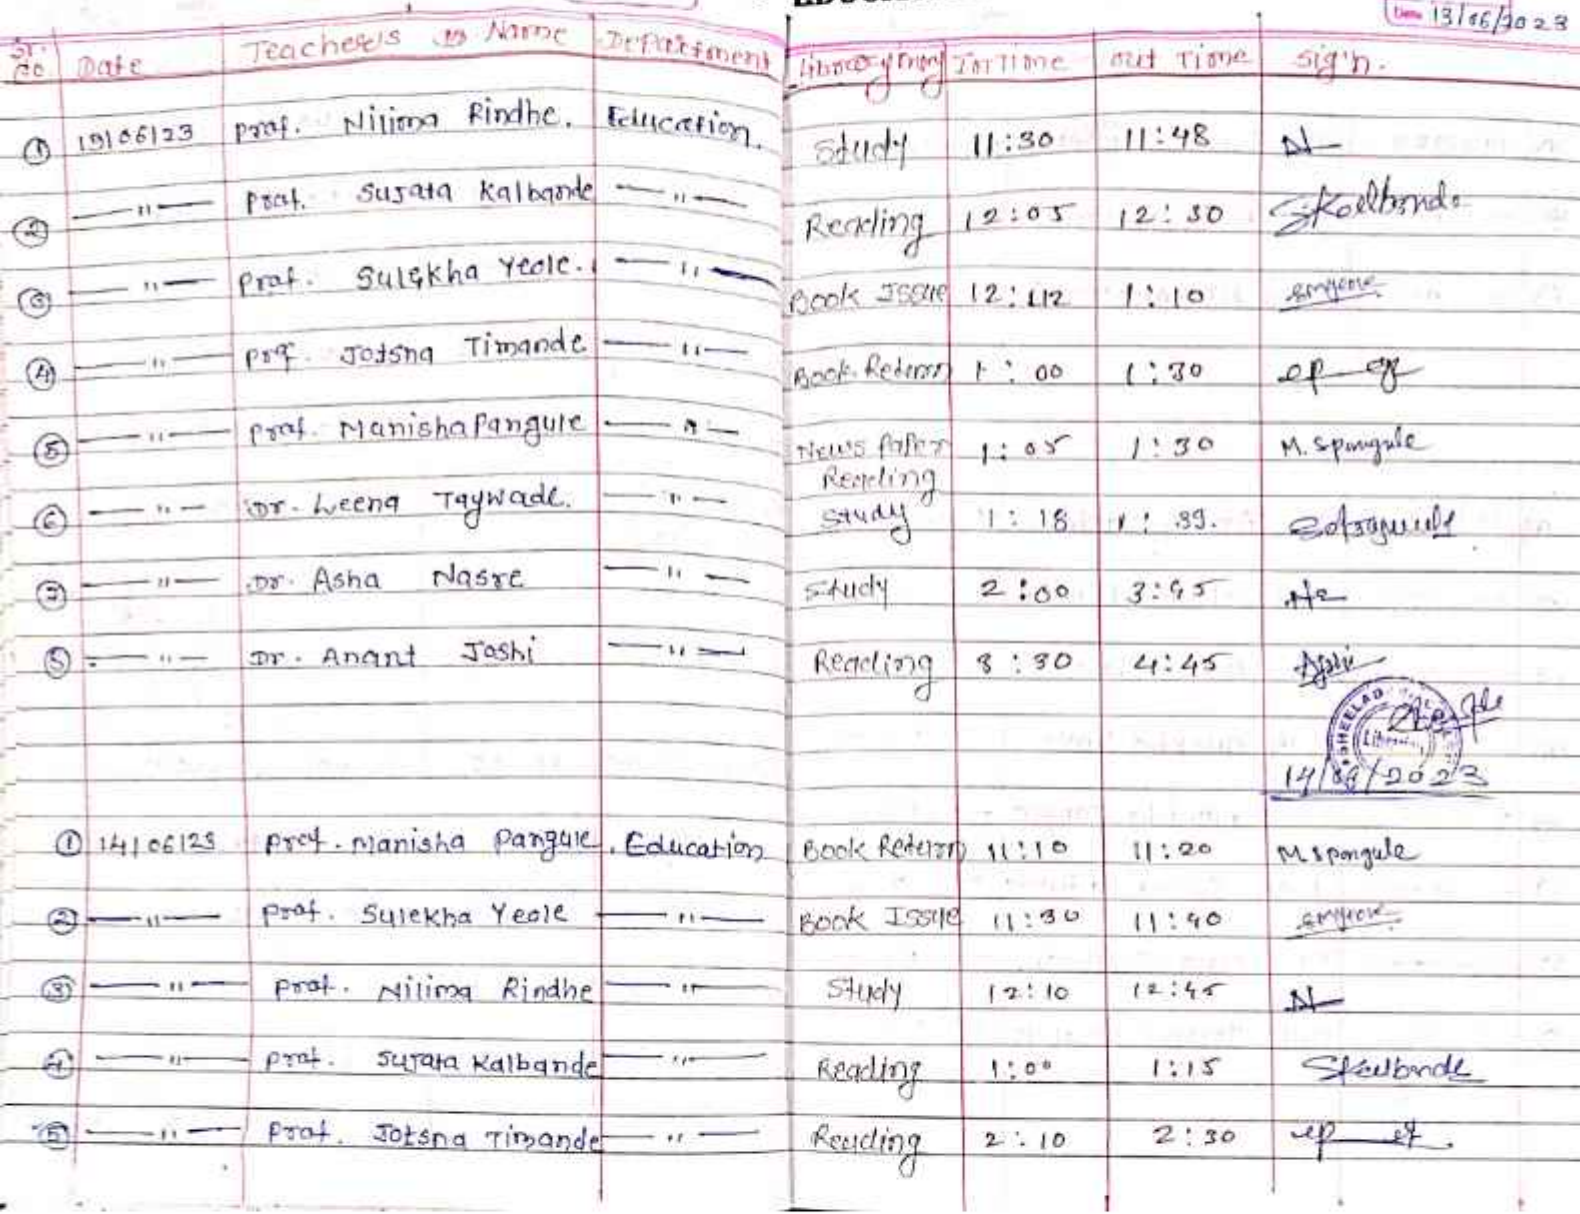 Date 13/06/2023
Sr. no Date Teachers Name Department Library In Time out Time Sig'n.
① 13/06/23 prof. Nilima Rindhe. Education. Study 11:30 11:48 N
② —〃— prof. Sujata Kalbande —〃— Reading 12:05 12:30 SKalbande
③ —〃— prof. Sulekha Yeole. —〃— Book Issue 12:42 1:10
④ —〃— prof. Jotsna Timande —〃— Book Retern 1:00 1:30
⑤ —〃— prof. Manisha Pangule —〃— News Paper 1:05 1:30 M. Spangule
Reading
⑥ —〃— Dr. Leena Taywade. —〃— Study 1:18 1:39.
⑦ —〃— Dr. Asha Nasre —〃— Study 2:00 3:45
⑧ —〃— Dr. Anant Joshi —〃— Reading 3:30 4:45 Ajoshi
Librarian
14/06/2023
① 14/06/23 prof. Manisha Pangule. Education Book Retern 11:10 11:20 M Spangule
② —〃— prof. Sulekha Yeole —〃— Book Issue 11:30 11:40
③ —〃— prof. Nilima Rindhe —〃— Study 12:10 12:45 N
④ —〃— prof. Sujata Kalbande —〃— Reading 1:00 1:15 SKalbande
⑤ —〃— prof. Jotsna Timande —〃— Reading 2:10 2:30